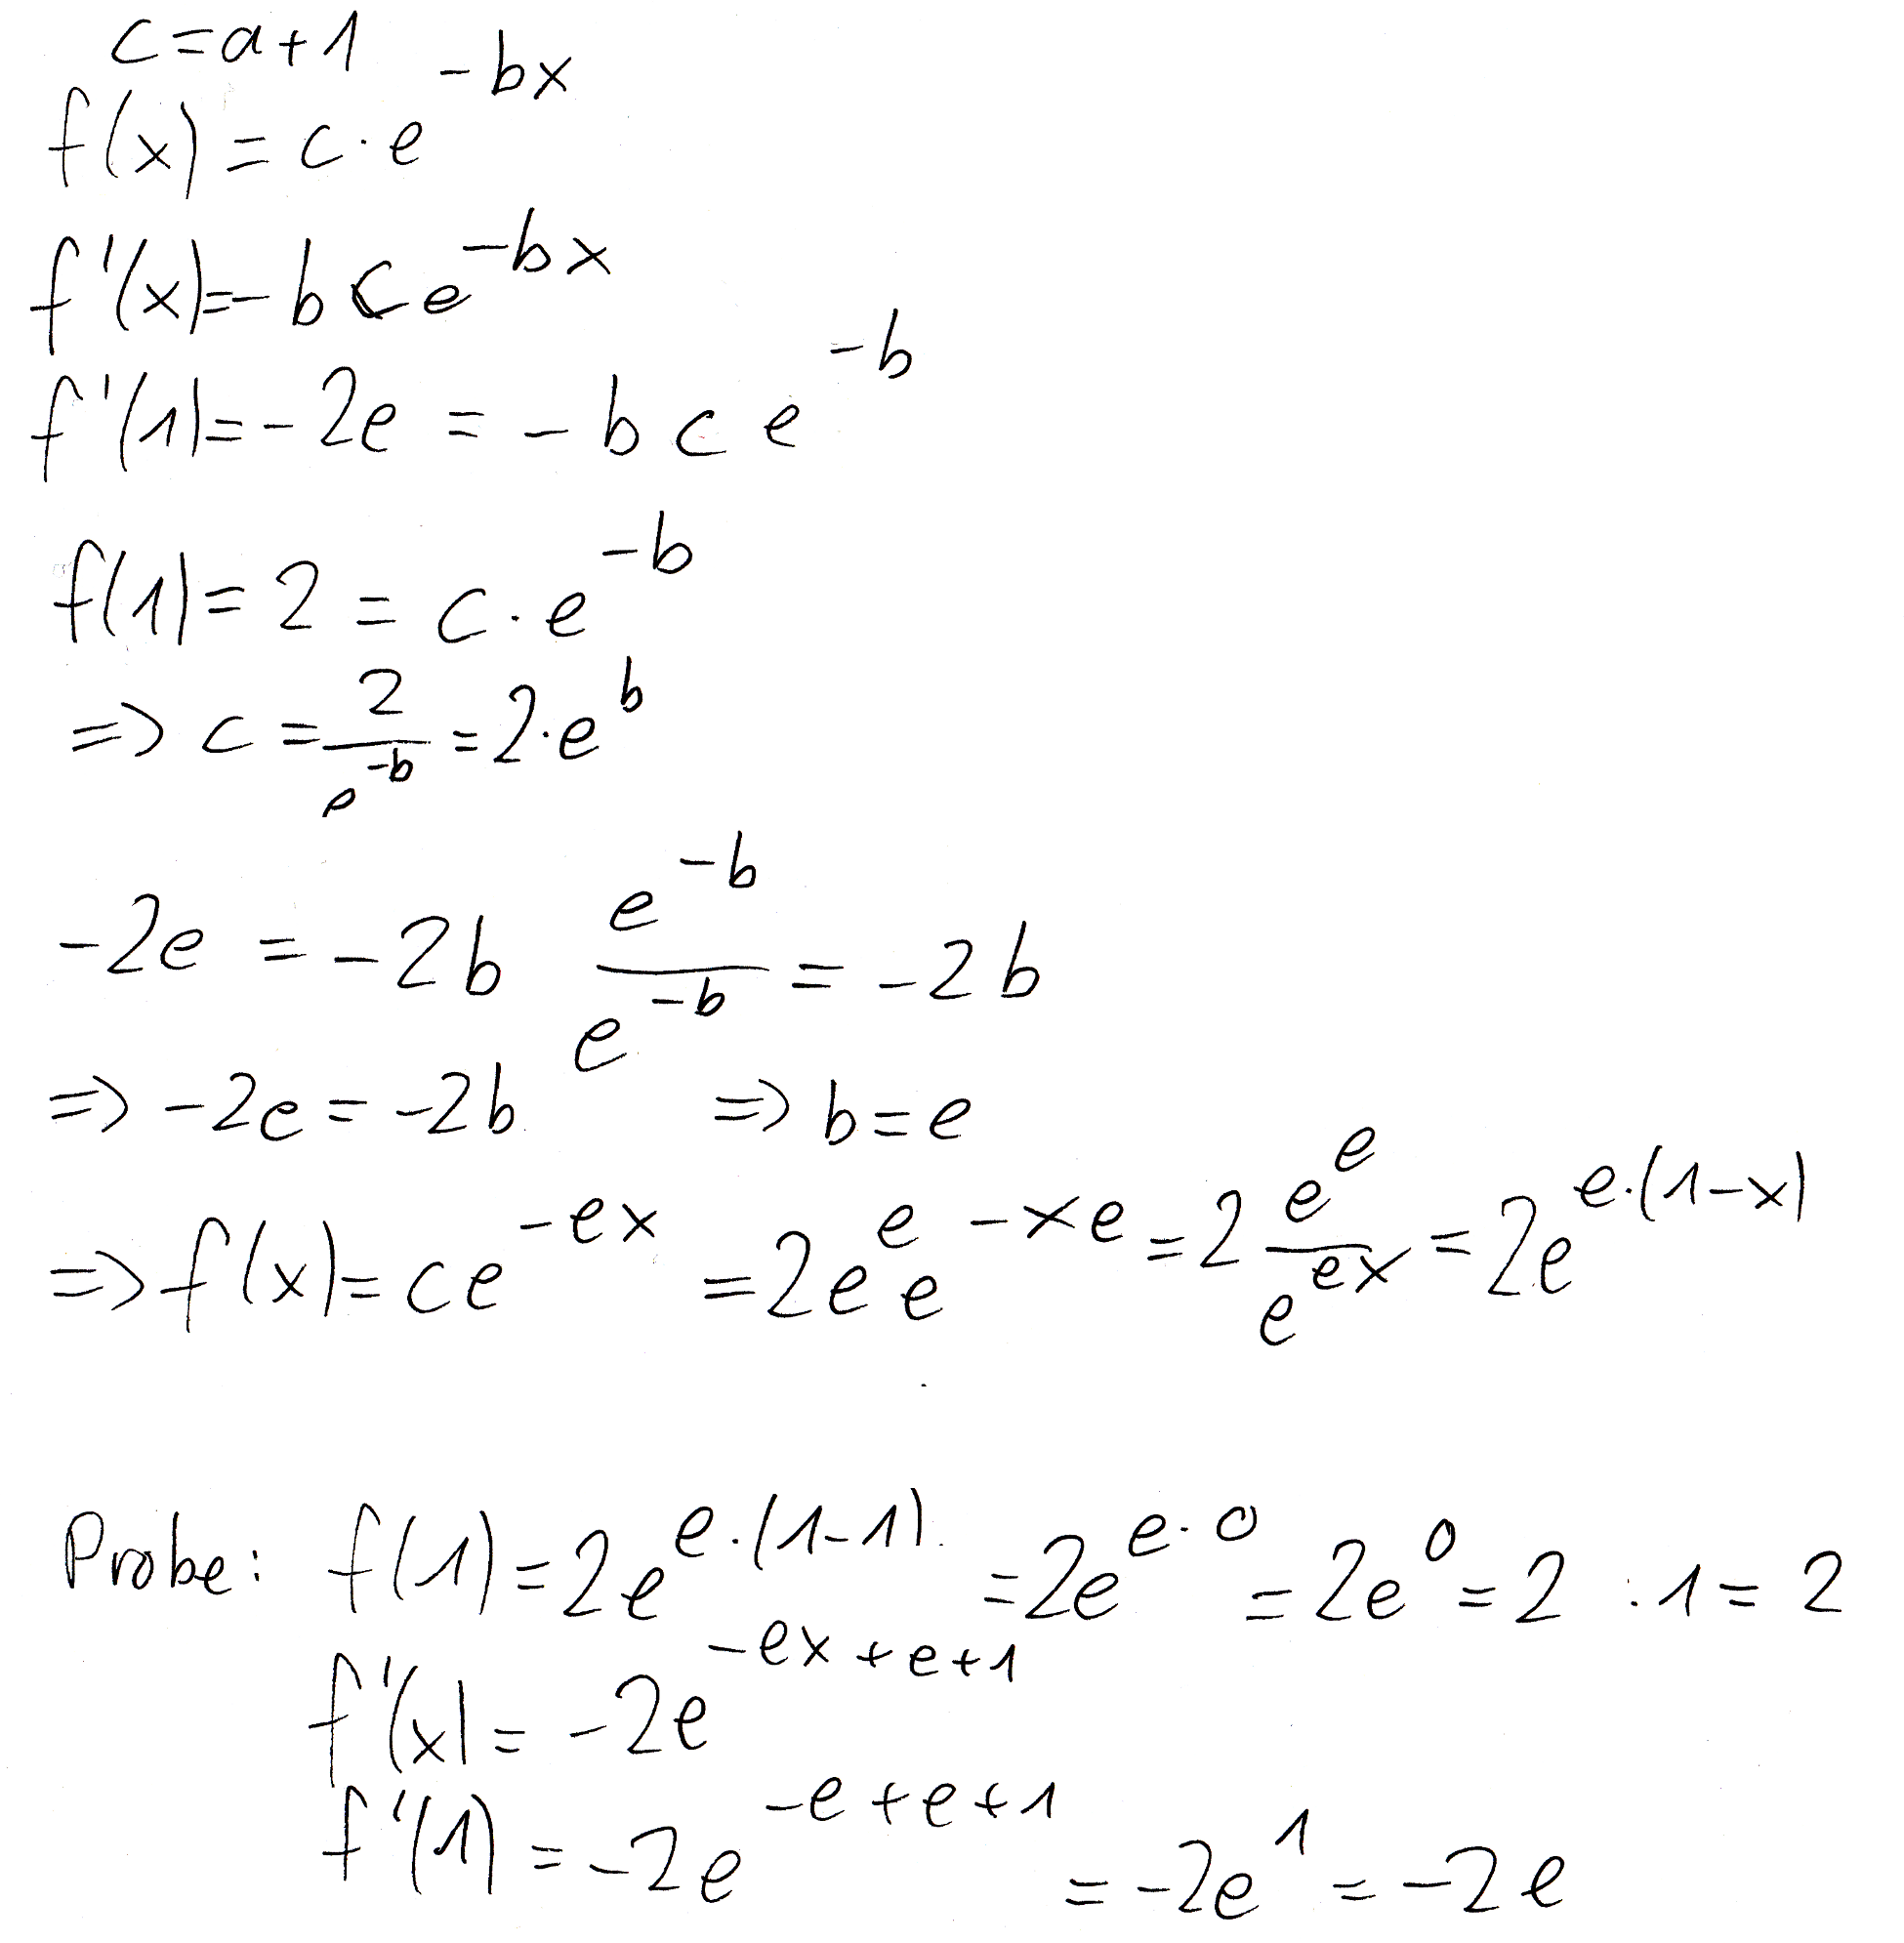 c = a + 1
f(x) = c · e^{-bx}
f'(x) = -b c e^{-bx}
f'(1) = -2e = -b c e^{-b}
f(1) = 2 = c · e^{-b}
=> c = \frac{2}{e^{-b}} = 2 · e^{b}
-2e = -2b \frac{e^{-b}}{e^{-b}} = -2b
=> -2e = -2b => b = e
=> f(x) = c e^{-ex} = 2 e^{e} e^{-xe} = 2 \frac{e^{e}}{e^{ex}} = 2e^{e·(1-x)}
Probe: f(1) = 2e^{e·(1-1)} = 2e^{e·0} = 2e^{0} = 2 : 1 = 2
f'(x) = -2e^{-ex+e+1}
f'(1) = -2e^{-e+e+1} = -2e^{1} = -2e